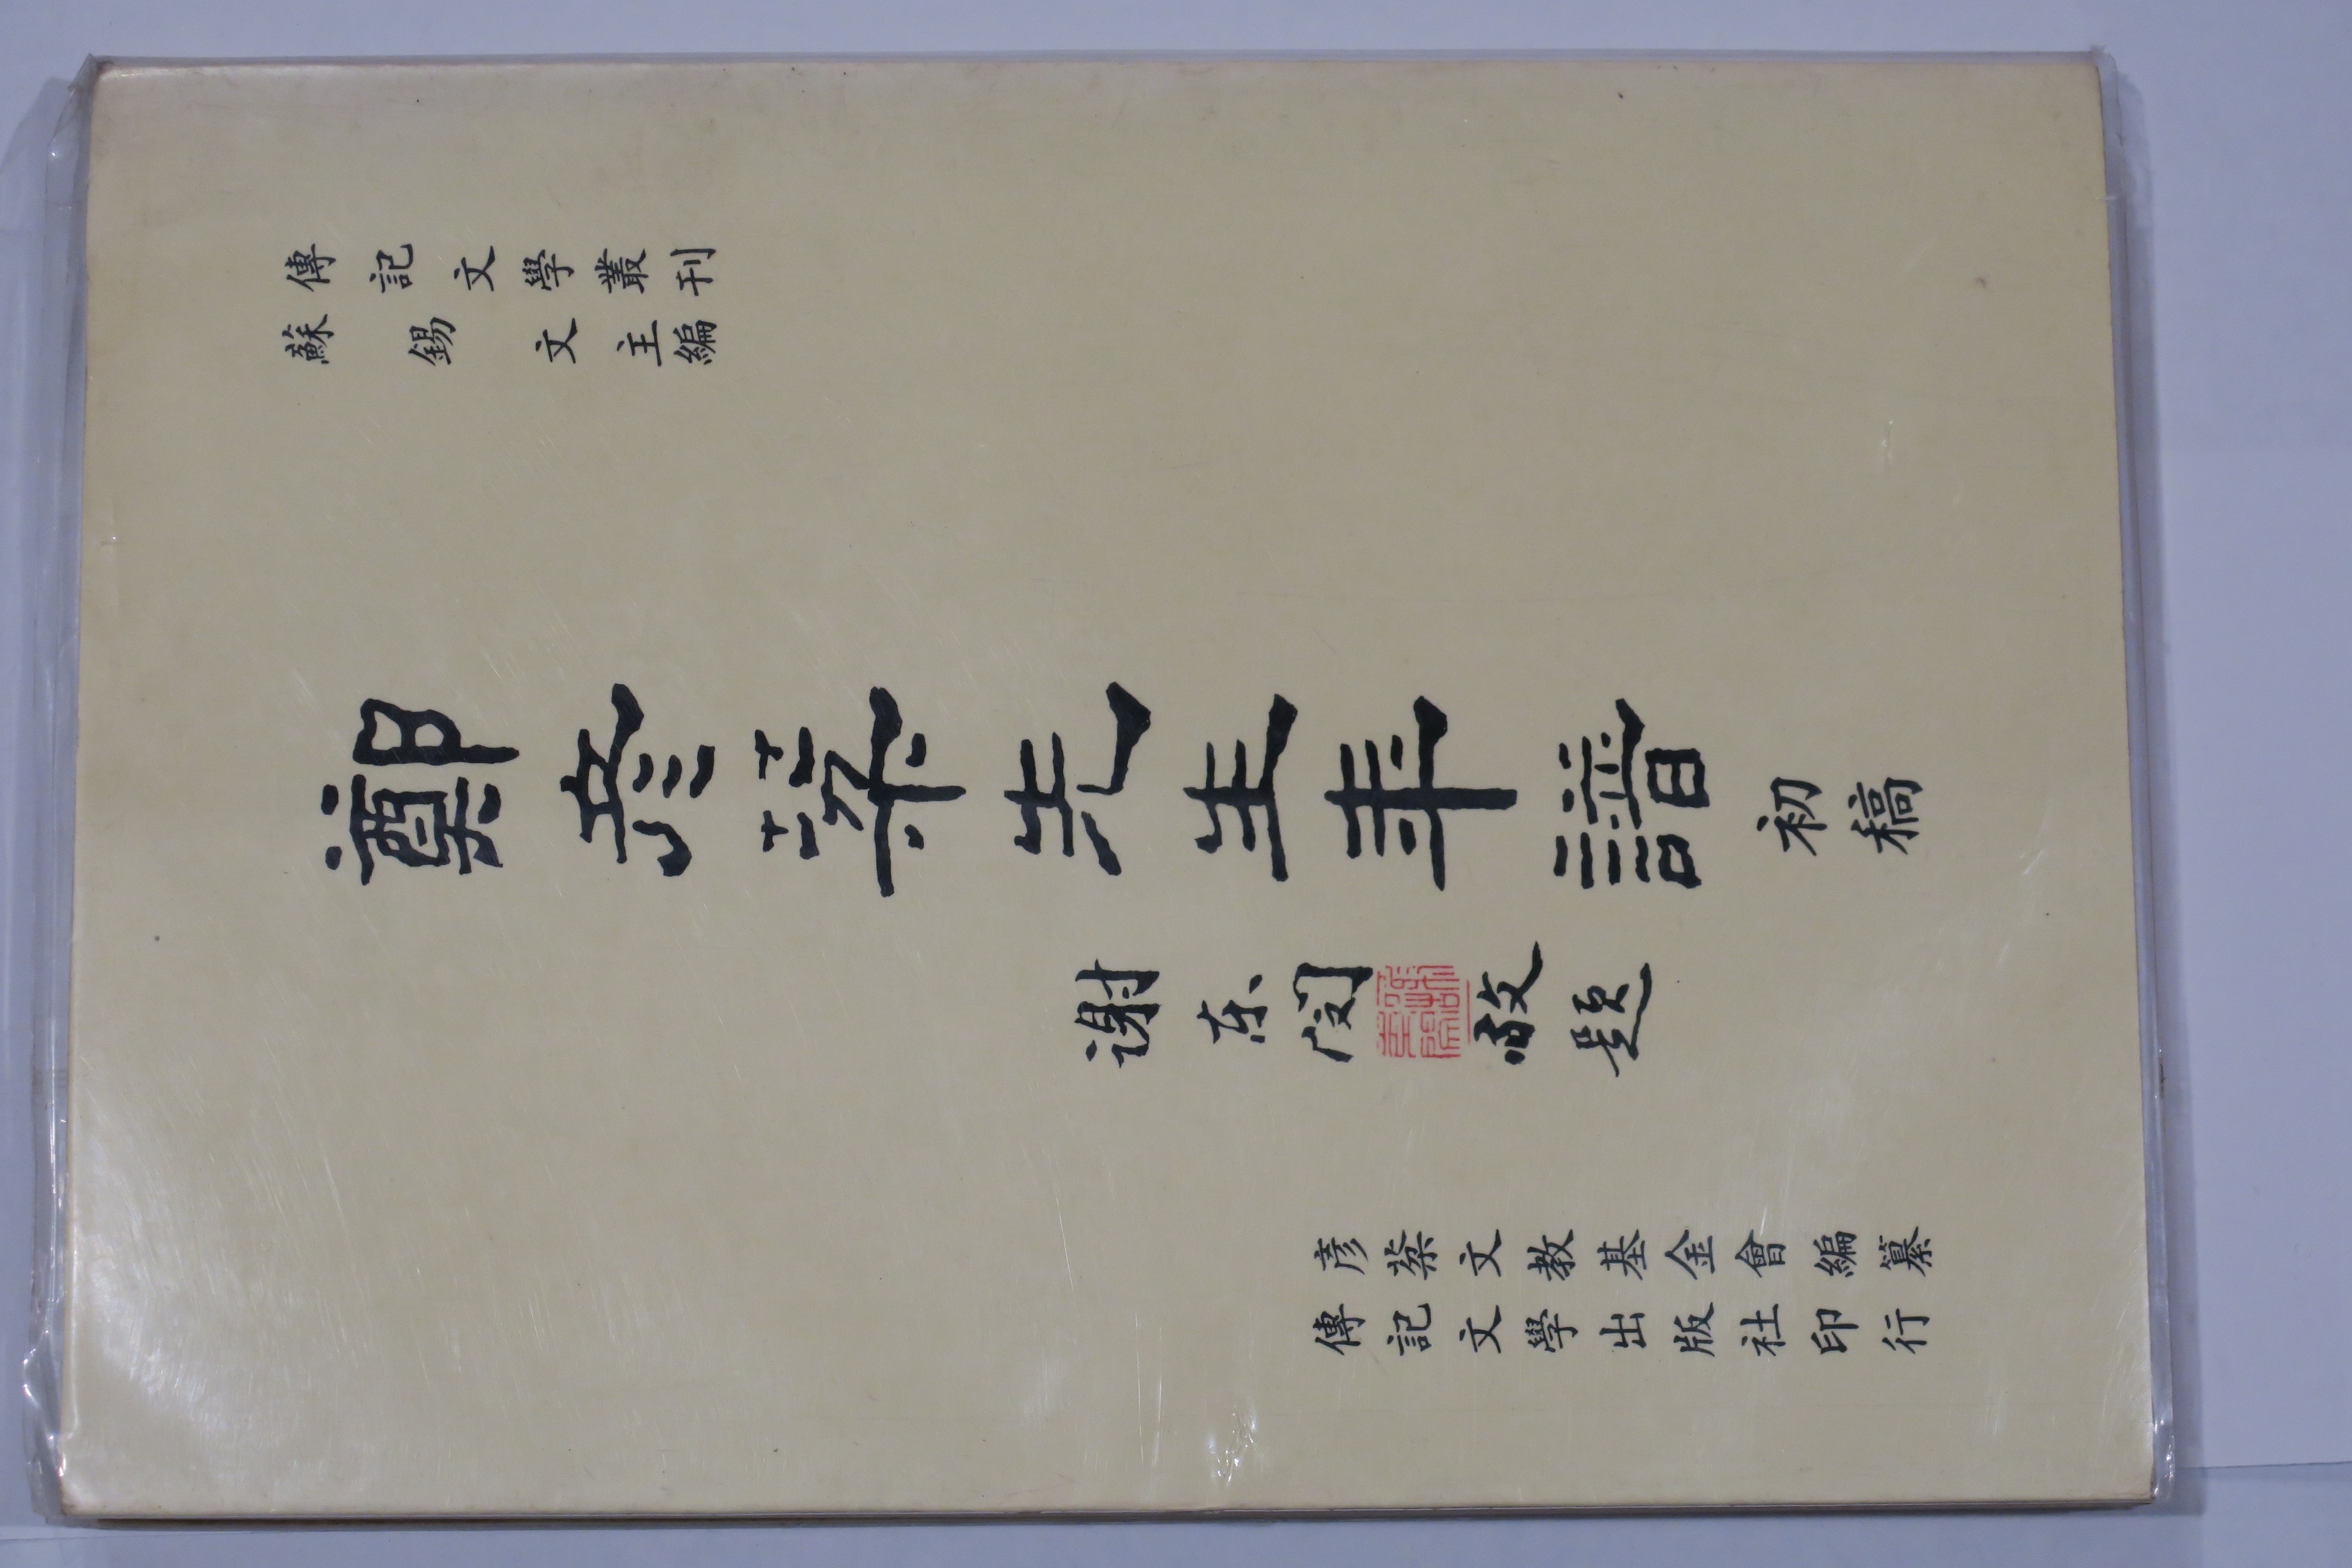 傳記文學叢刊
蘇錫文主編
鄭彥棻先生年譜初稿
謝東閔敬題
彥棻文教基金會編纂
傳記文學出版社印行